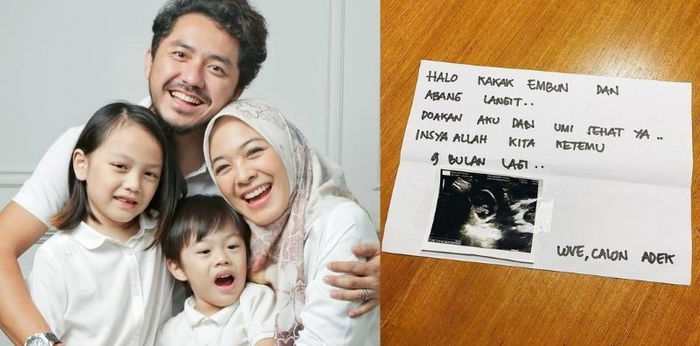 HALO KAKAK EMBUN DAN
ABANG LANGIT..
DOAKAN AKU DAN UMI SEHAT YA..
INSYAALLAH KITA KETEMU
9 BULAN LAGI..
LOVE, CALON ADEK